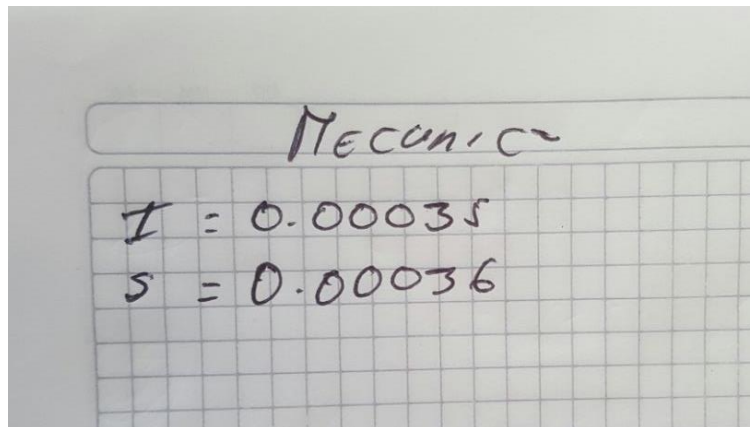 Mecanica
I = 0.00035
S = 0.00036